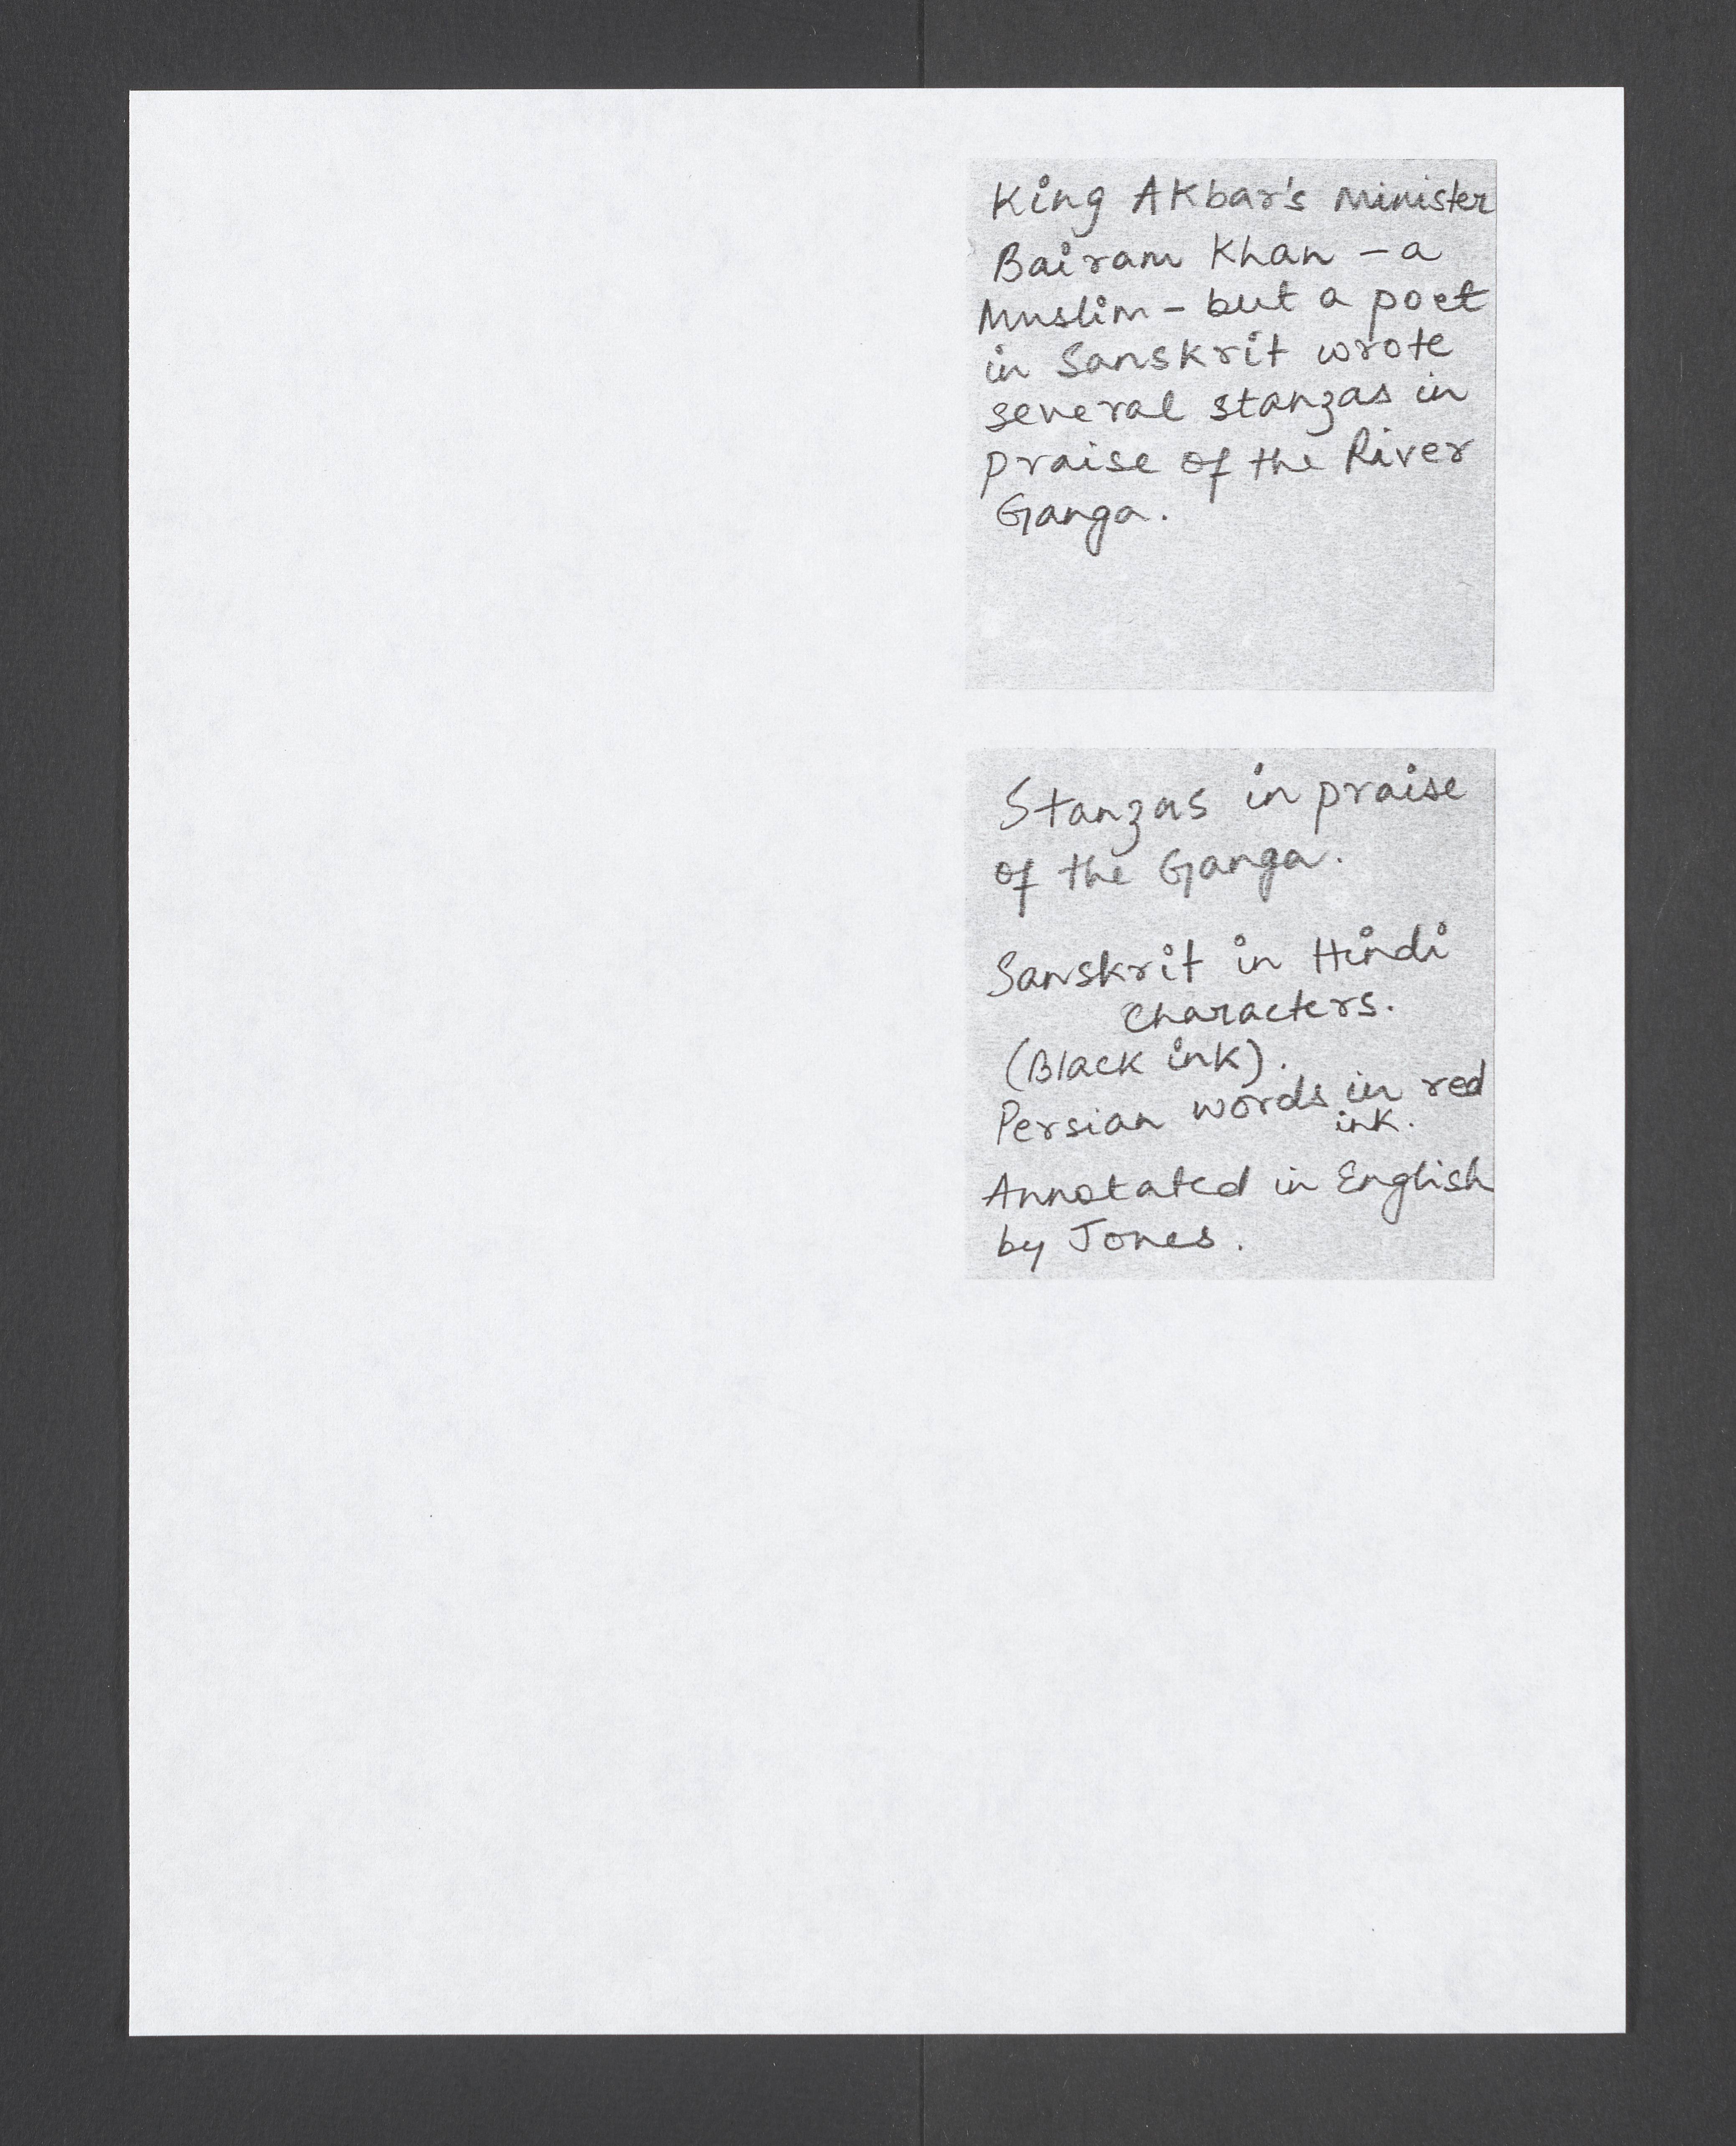 King Akbar's Minister
Bairam Khan – a
Muslim – but a poet
in Sanskrit wrote
several stanzas in
praise of the River
Ganga.
Stanzas in praise
of the Ganga.
Sanskrit in Hindi
characters.
(Black ink).
Persian words in red
ink.
Annotated in English
by Jones.